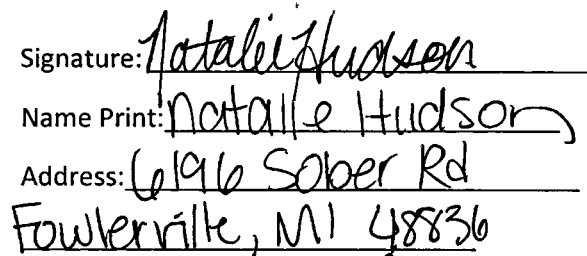 Signature: Natalie Hudson
Name Print: Natalie Hudson
Address: 6196 Sober Rd
Fowlerville, MI 48836